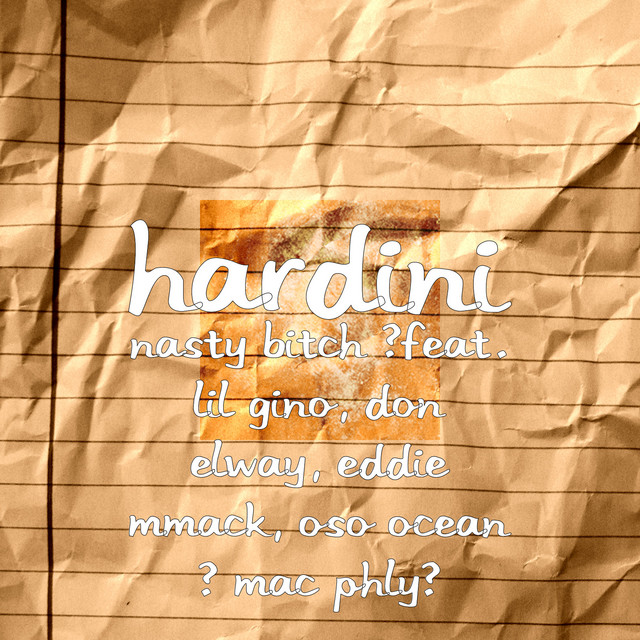 hardini
nasty bitch ?feat.
lil gino, don
elway, eddie
mmack, oso ocean
? mac phly?